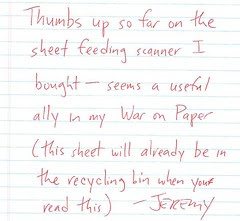 Thumbs up so far on the
sheet feeding scanner I
bought — seems a useful
ally in my War on Paper
(this sheet will already be in
the recycling bin when you
read this) — JEREMY